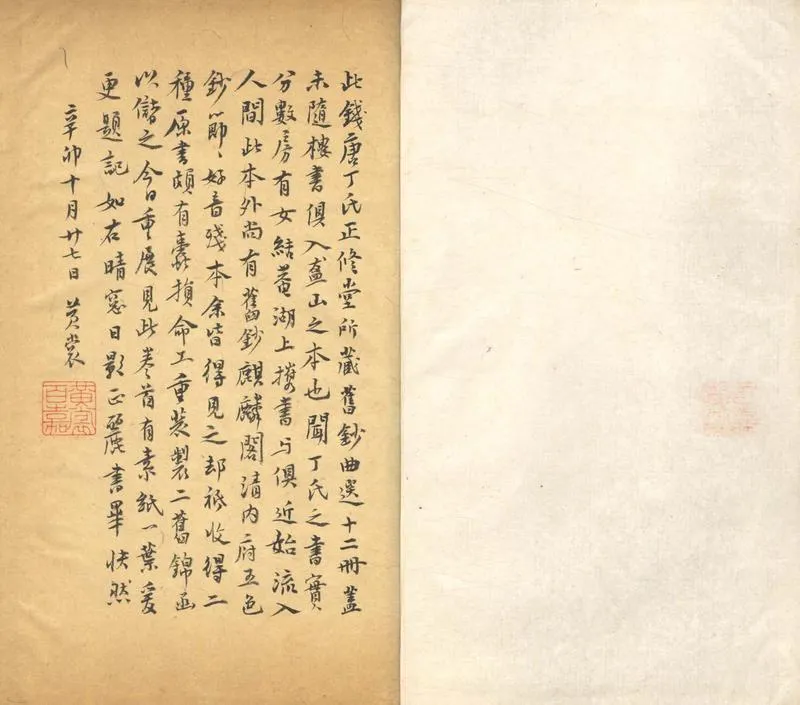 此錢唐丁氏正修堂所藏舊鈔曲選十二冊蓋
未隨樓書俱入盋山之本也聞丁氏之書實
分數房有女結菴湖上携書与俱近始流入
人間此本外尚有舊鈔麒麟閣清内府五色
鈔節〻好音殘本余皆得見之却祗收得二
種原書頗有蠹損命工重裝製二舊錦函
以儲之今日重展見此卷首有素紙一葉爰
更題記如右晴窓日影正麗書畢快然
辛卯十月廿七日 黄裳
黄裳
百嘉